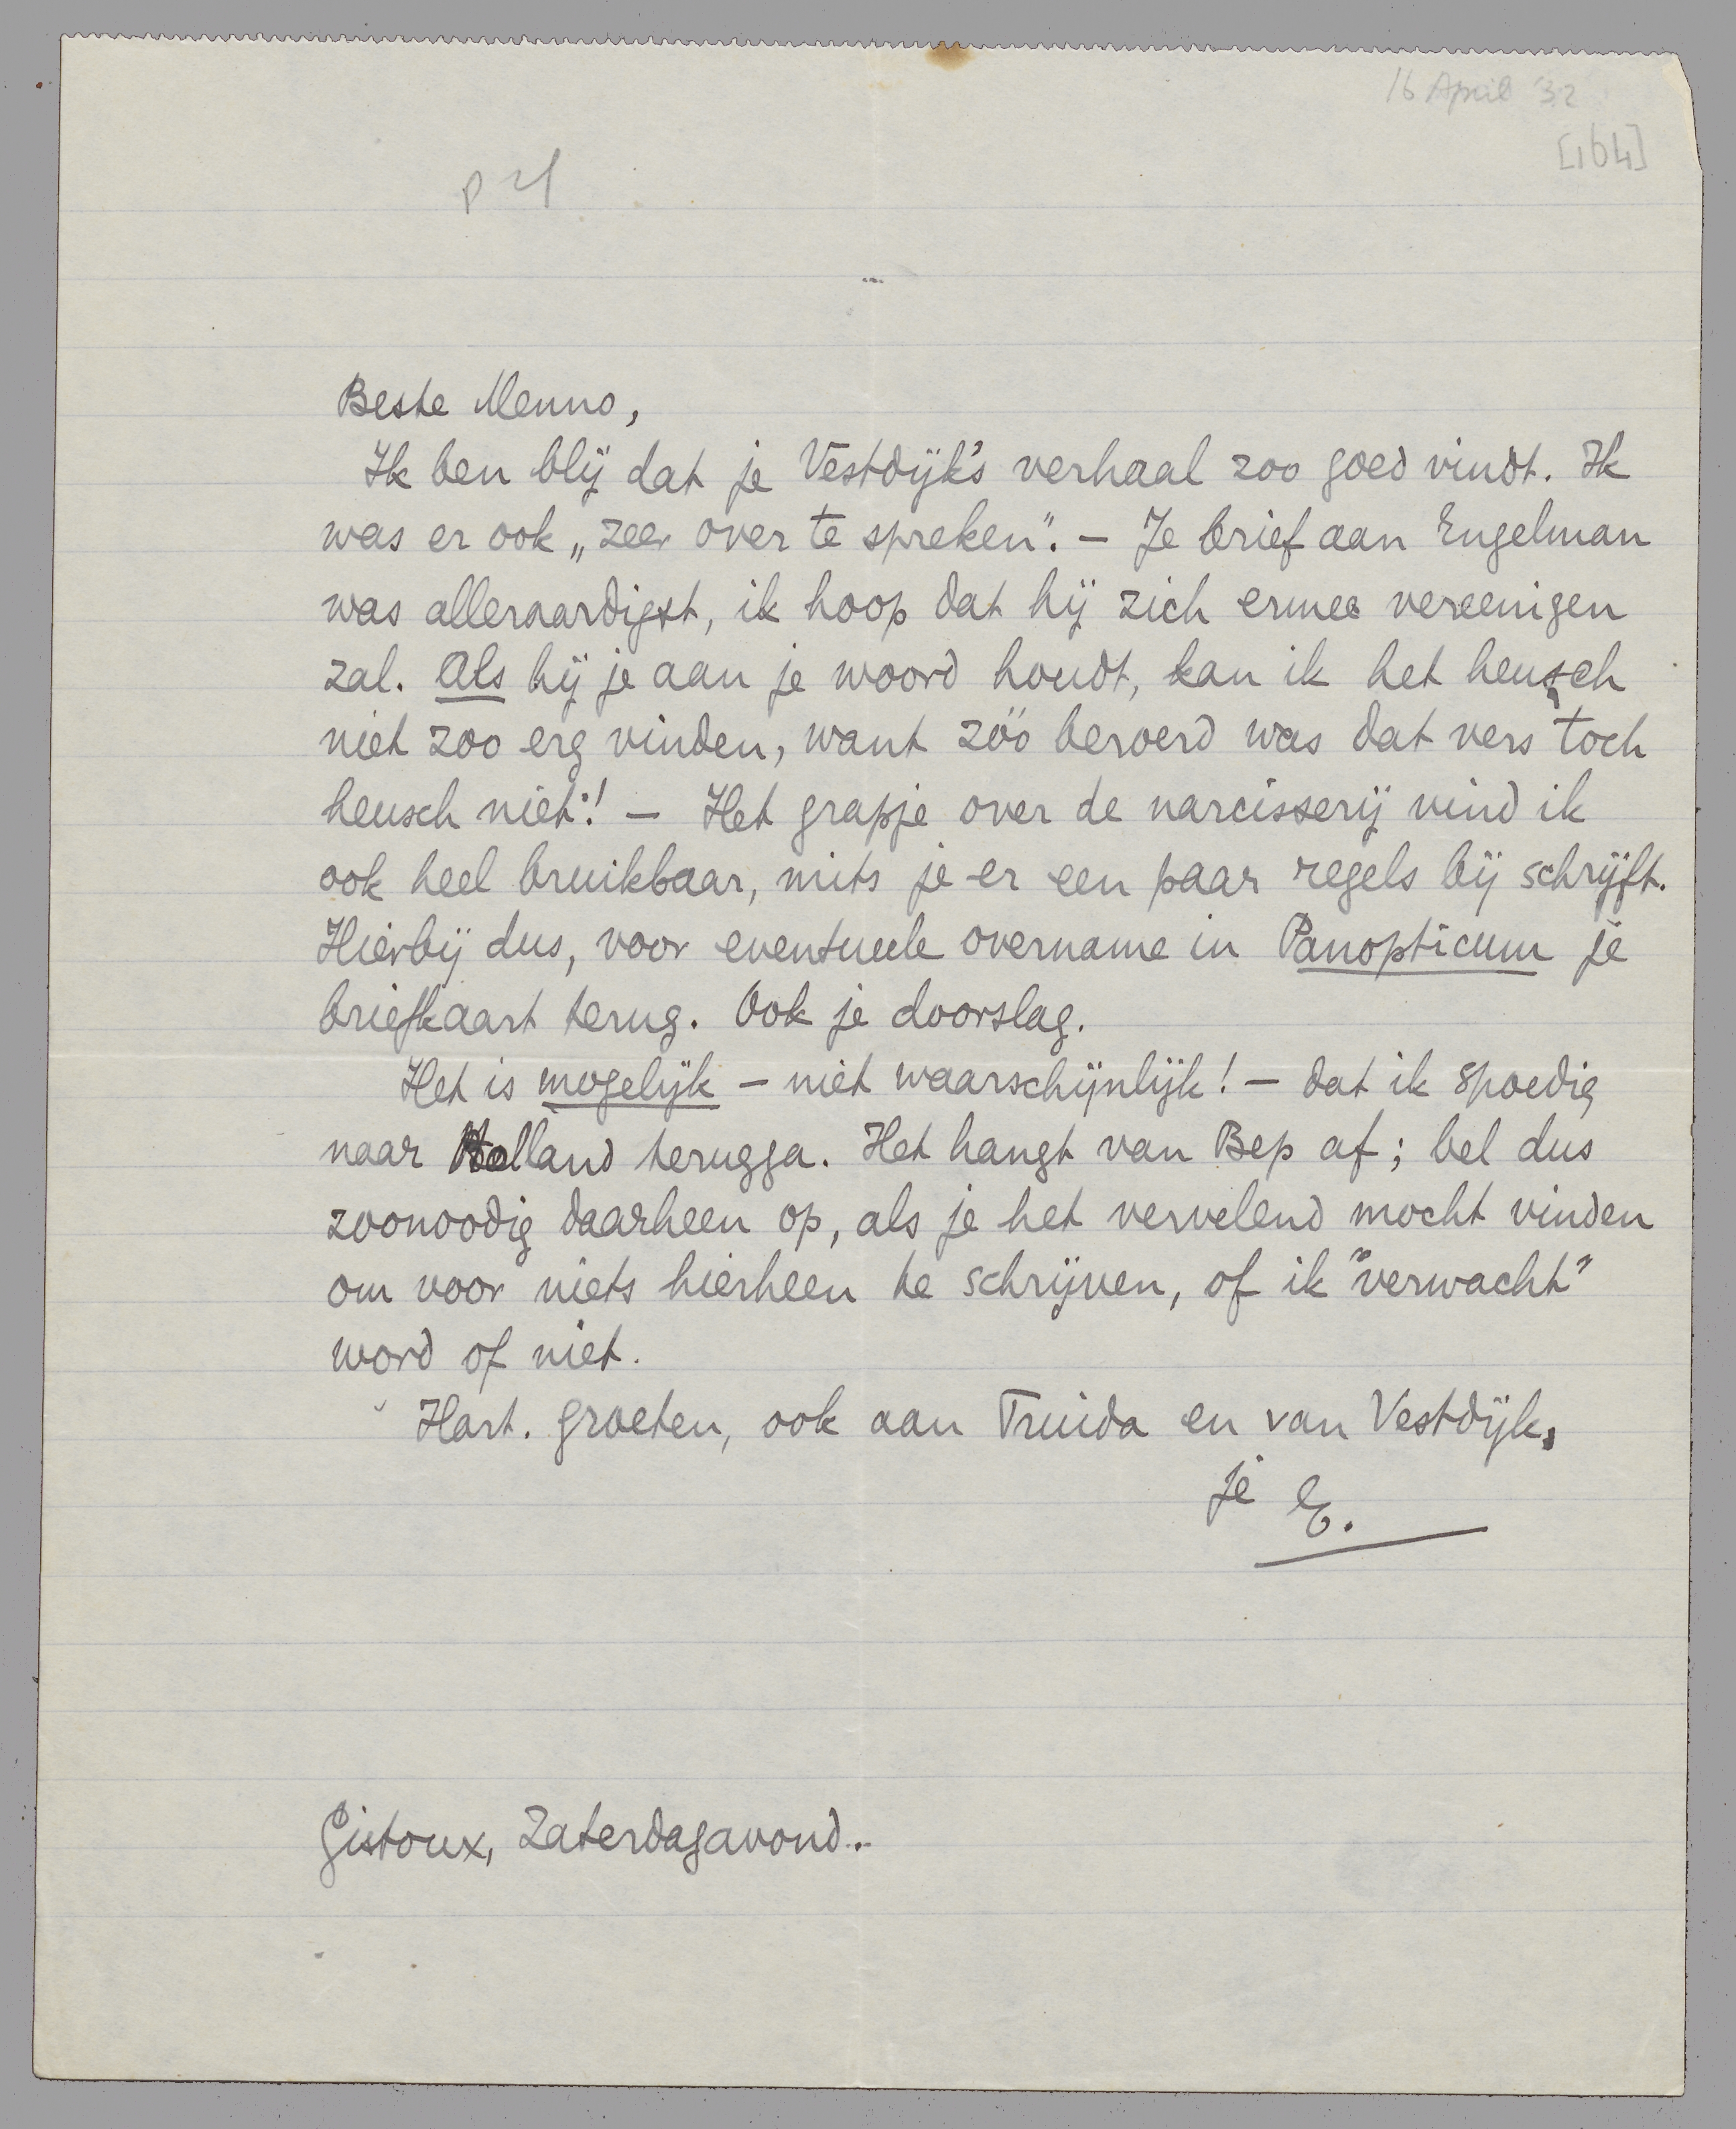 16 April '32
[164]
Beste Menno,
Ik ben blij dat je Vestdijk's verhaal zoo goed vindt. Ik
was er ook „zeer over te spreken". – Je brief aan Engelman
was alleraardigst, ik hoop dat hij zich ermee vereenigen
zal. Als hij je aan je woord houdt, kan ik het heusch
niet zoo erg vinden, want zóó beroerd was dat vers toch
heusch niet! – Het grapje over de narcisserij vind ik
ook heel bruikbaar, mits je er een paar regels bij schrijft.
Hierbij dus, voor eventueele overname in Panopticum je
briefkaart terug. Ook je doorslag.
Het is mogelijk – niet waarschijnlijk! – dat ik spoedig
naar Holland terugga. Het hangt van Bep af; bel dus
zoonoodig daarheen op, als je het vervelend mocht vinden
om voor niets hierheen te schrijven, of ik "verwacht"
word of niet.
Hart. groeten, ook aan Truida en van Vestdijk,
je E.
Gistoux, Zaterdagavond.